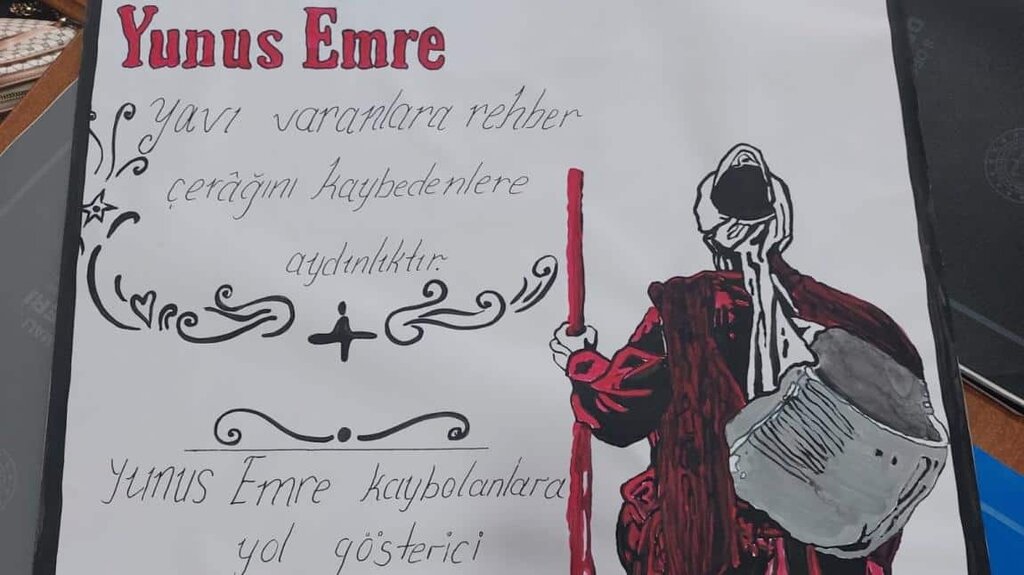 Yunus Emre
Yavı varanlara rehber
çerâğını kaybedenlere
aydınlıktır.
Yunus Emre kaybolanlara
yol gösterici